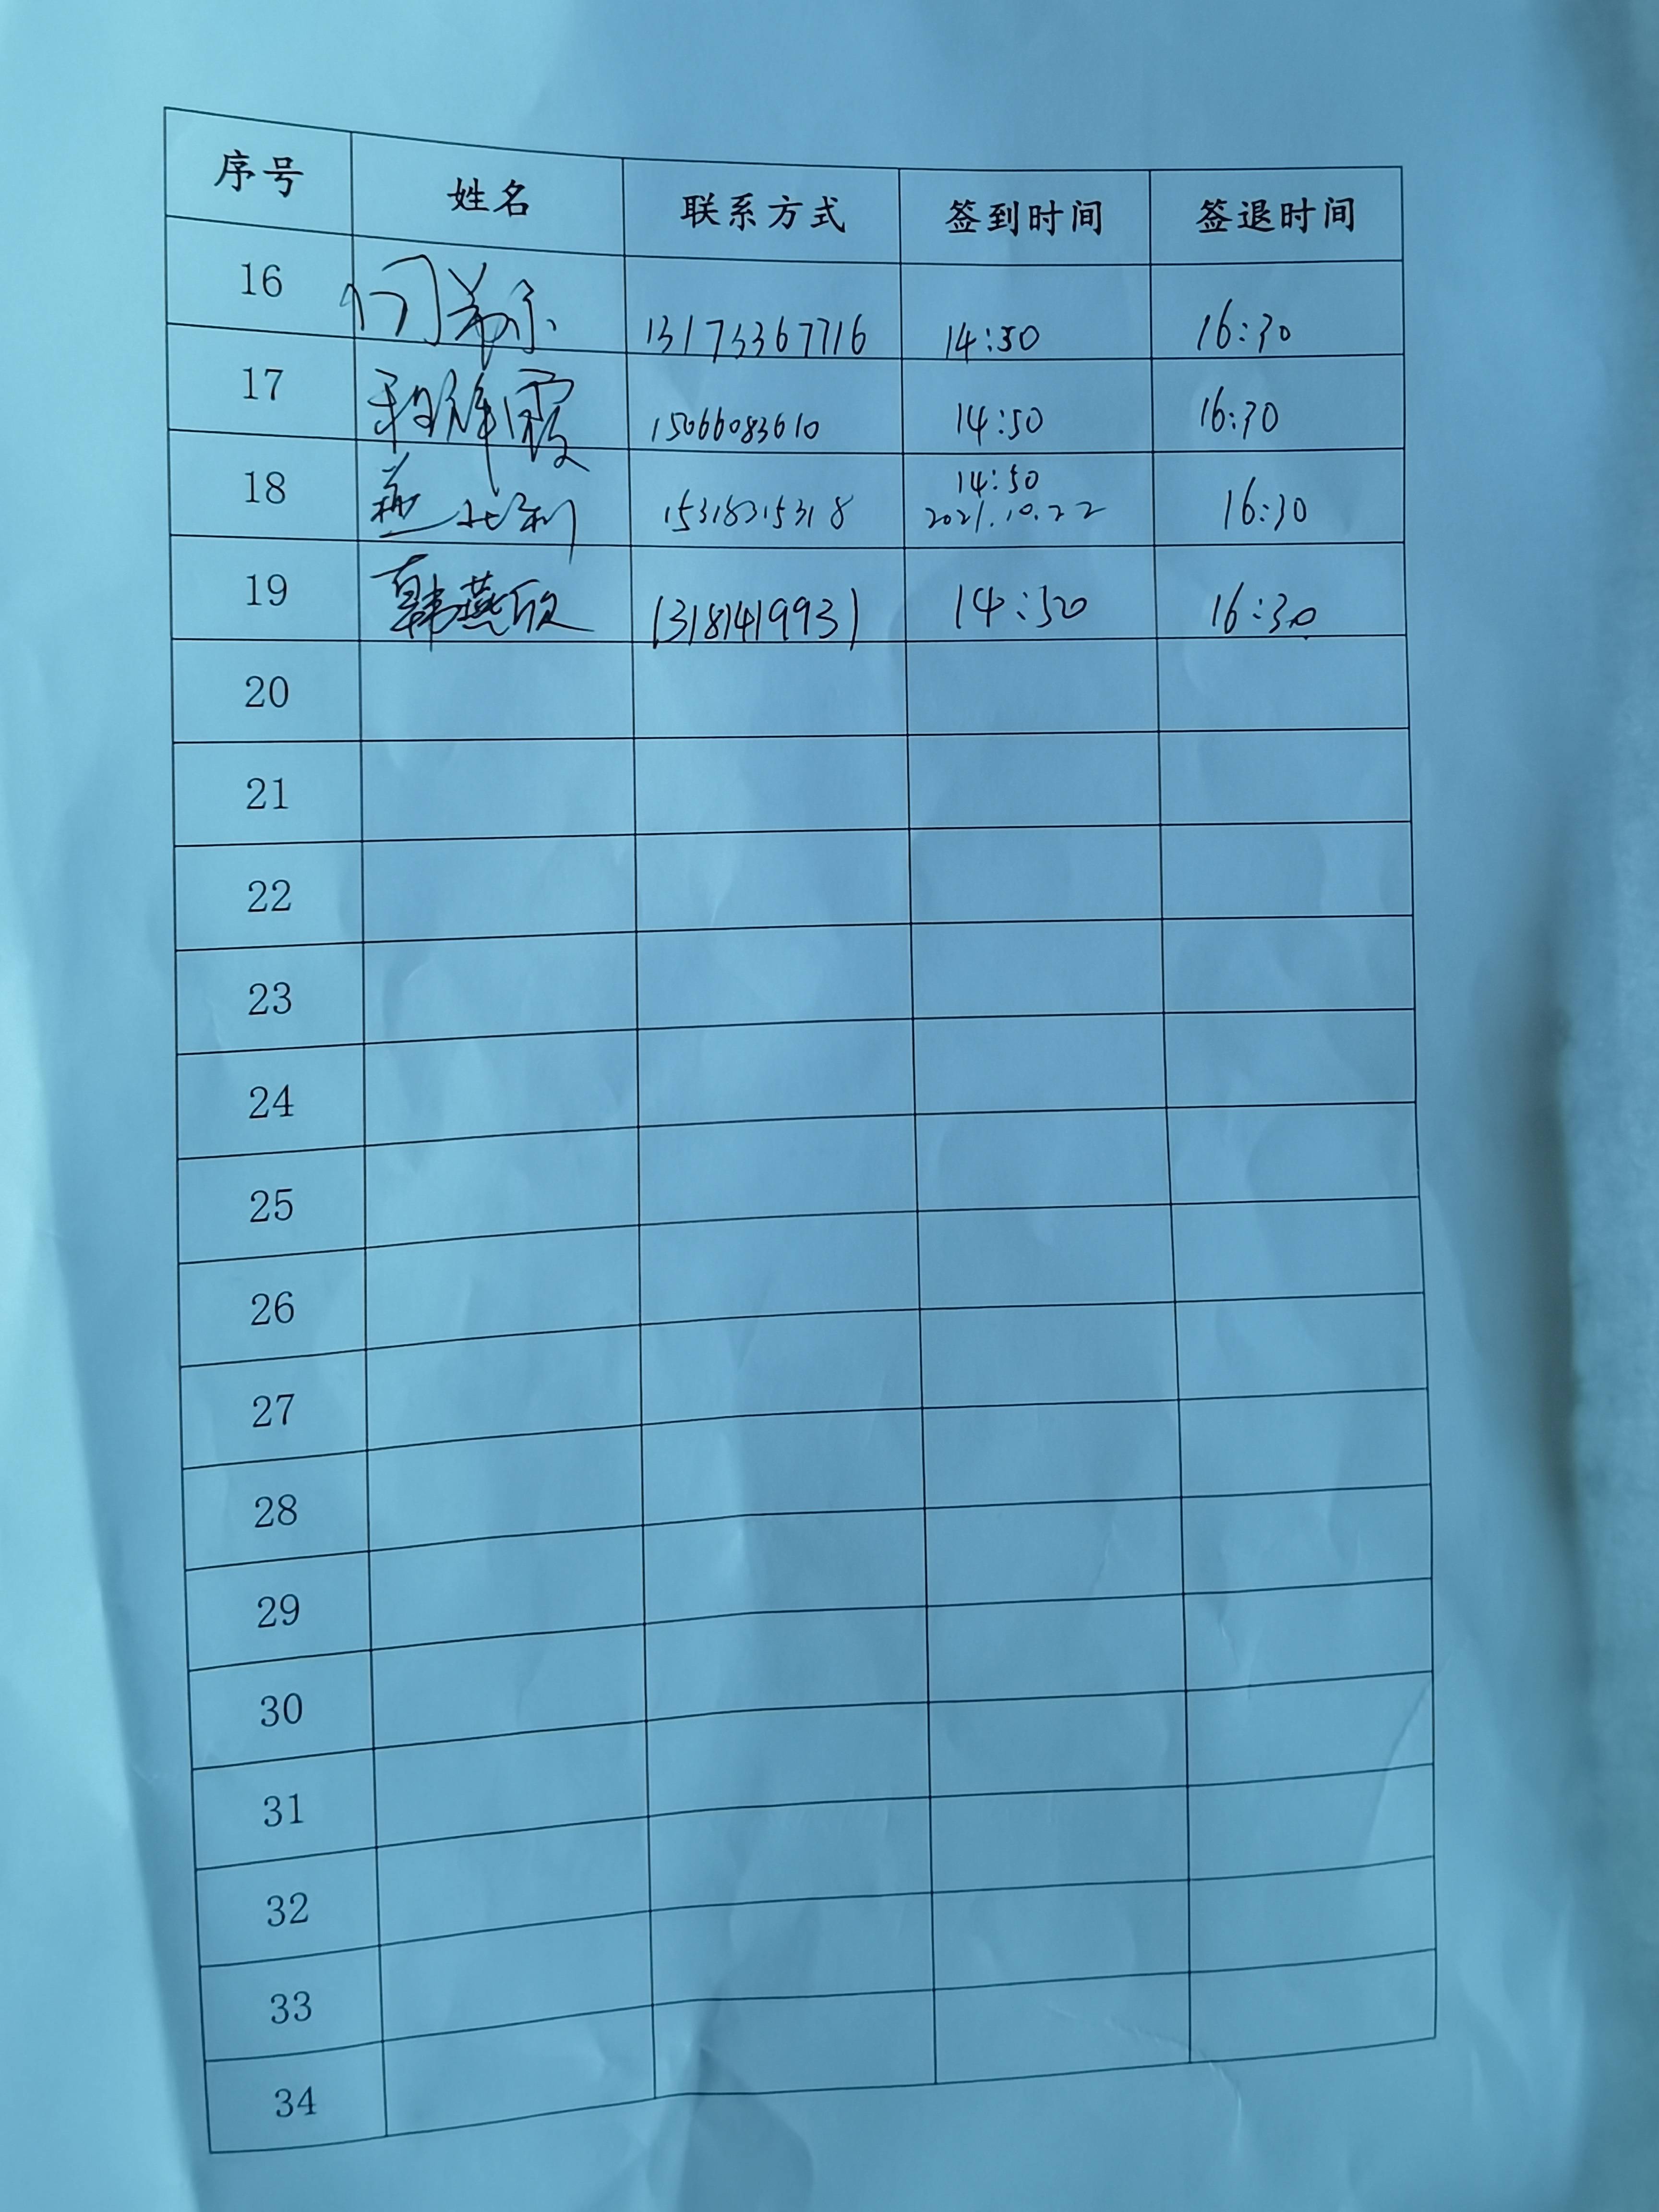 序号 姓名 联系方式 签到时间 签退时间
16 13173367716 14:50 16:30
17 15066083610 14:50 16:30
18 15318315318 14:50 16:30
2021.10.22
19 韩燕欣 13181419931 14:50 16:30
20
21
22
23
24
25
26
27
28
29
30
31
32
33
34